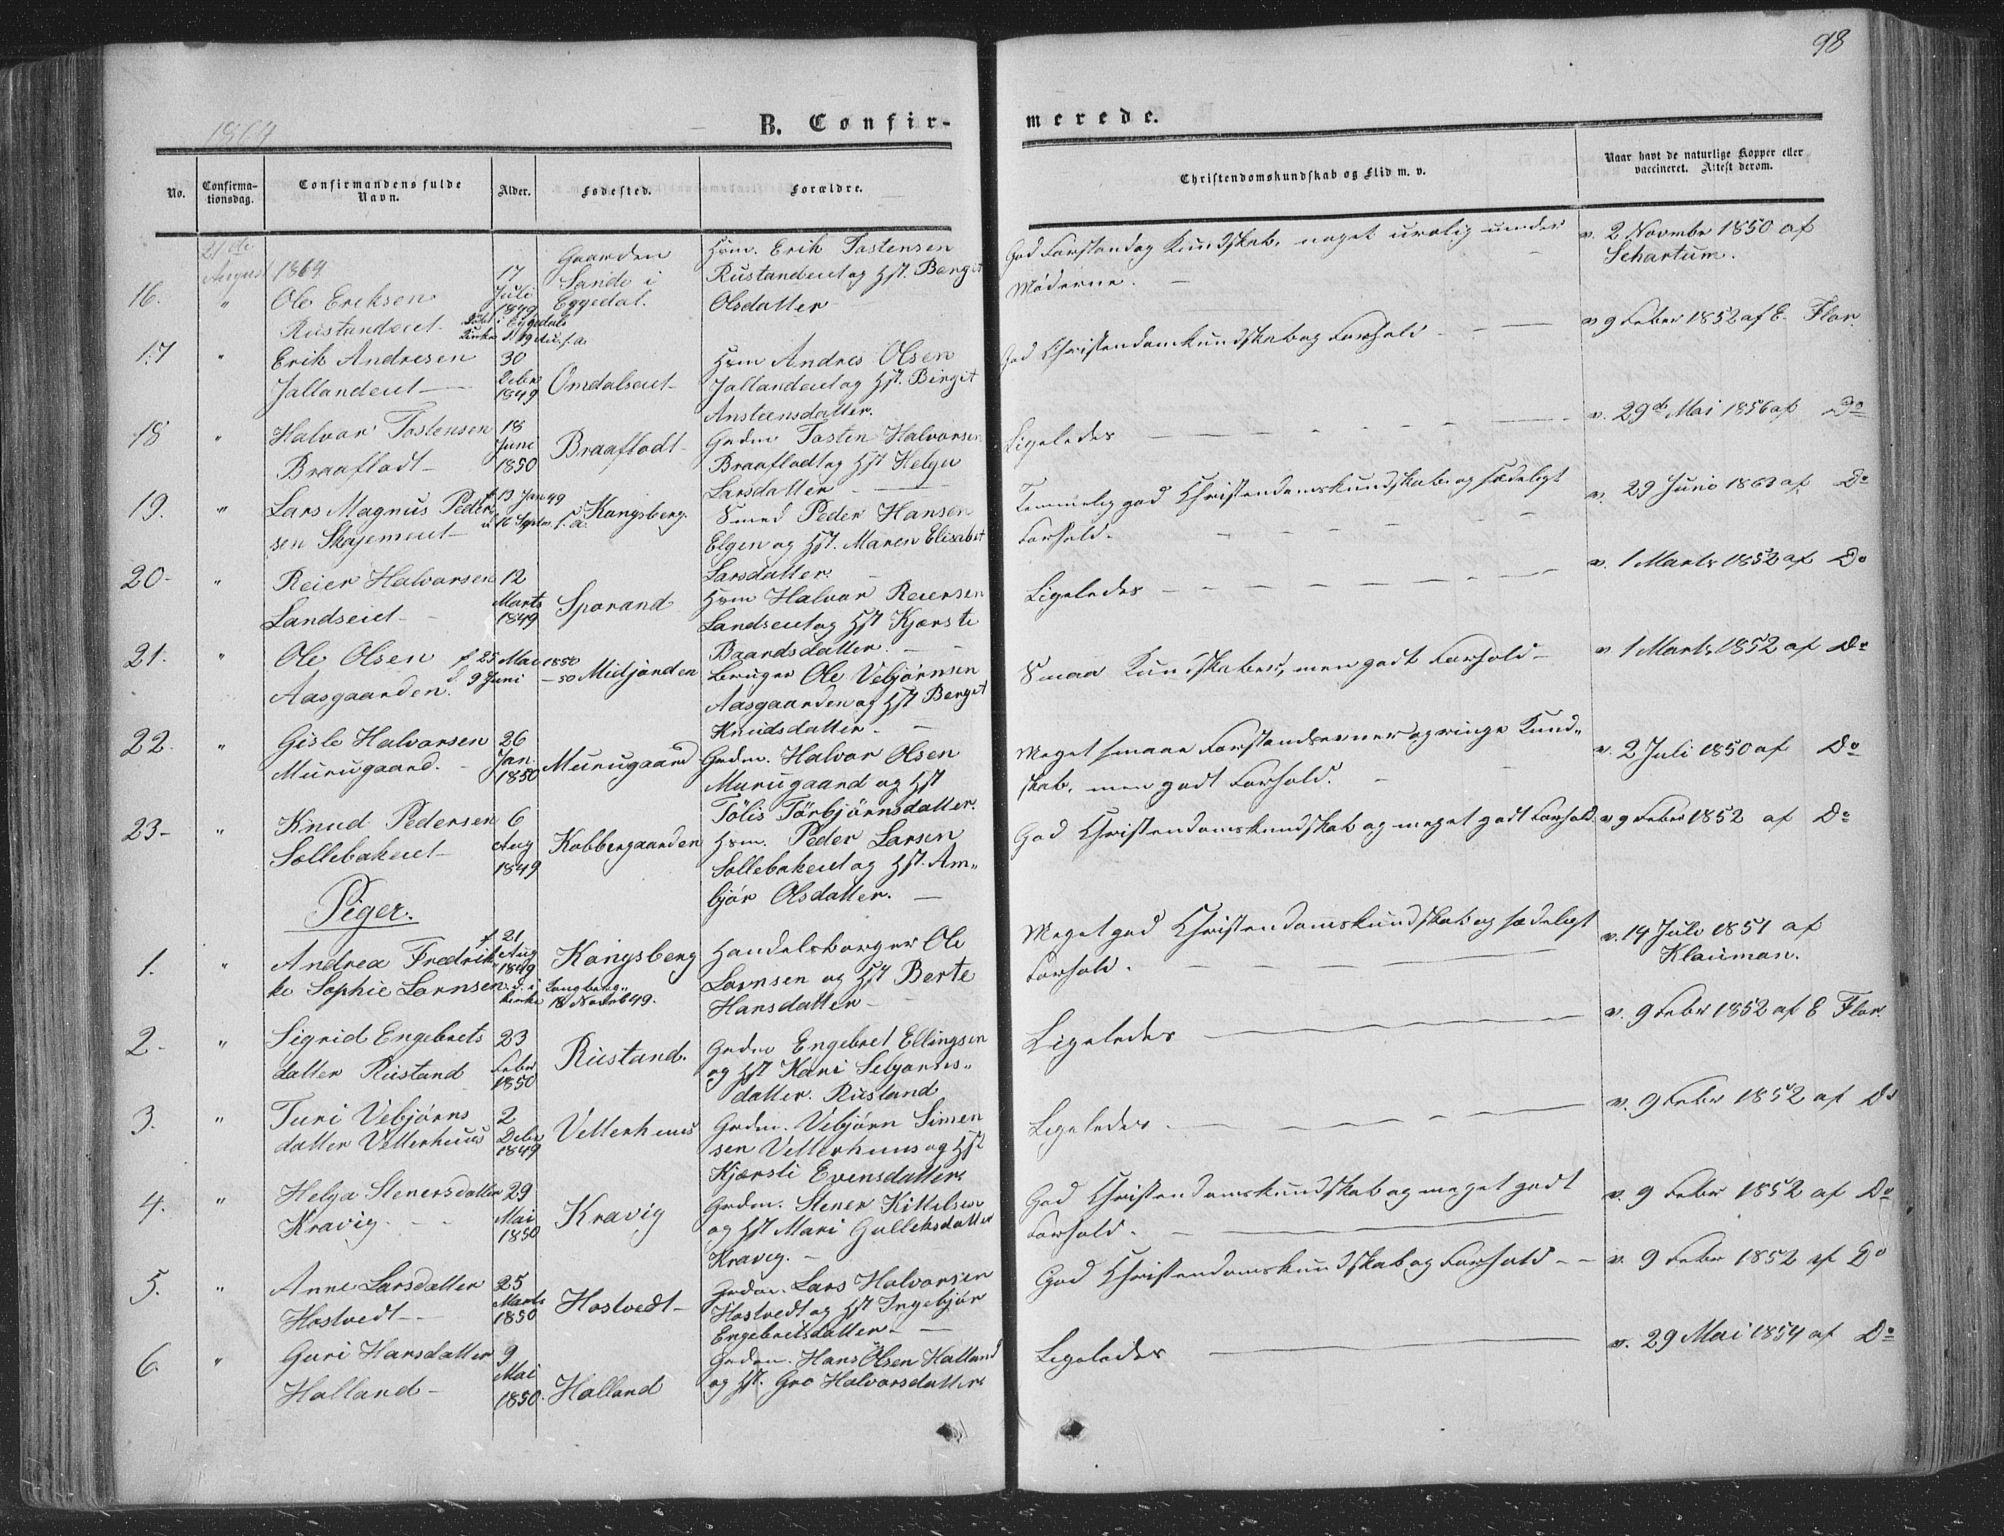 98
1864
B. Confir-
merede.
No.
Confirma-
tionsdag.
Confirmandens fulde
Navn.
Alder.
Fødested.
Forældre.
Christendomskundskab og Flid m. v.
Naar havt de naturlige Kopper eller
vaccineret. Attest derom.
21de
August 1864
16.
"
Ole Eriksen
Rustandeiet
17
Juli
1849
Gaarden
Sande i
Eggedal.
Hsm. Erik Tostensen
Rustandeiet og Hst. Bergit
Olsdatter
God Forstand og Kundskab, noget urolig under
Møderne.
v. 2 Novmbr 1850 af
Schartum.
17
"
Erik Andresen
Jallandeiet
30
Debr
1849
Omdalseiet
Hsm Andres Olsen
Jallandeiet og Hst. Birgit
Anstensdatter.
God Christendomskundskab og Forhold
v 9 Febr 1852 af E. Flor.
18
"
Halvor Tostensen
Braaflodt
18
Juni
1850
Braaflodt
Grdm Tosten Halvorsen
Braaflodt og Hst Helge
Larsdatter
Ligeledes
v. 29de Mai 1856 af Do
19.
"
Lars Magnus Peder-
sen Skajemeiet
f 13 Jan 49
d 16 Septbr s. a.
Kongsberg.
Smed Peder Hansen
Elgen og Hst. Maren Elisabet
Larsdatter.
Temmelig god Christendomskundskab og sædeligt
Forhold.
v. 29 Juni 1863 af Do
20
"
Reier Halvorsen
Landseiet
12
Marts
1849
Sporand
Hsm Halvor Reiersen
Landseiet og Hst Kjersti
Baardsdatter.
Ligeledes
v. 1 Marts 1852 af Do
21.
"
Ole Olsen
Aasgaarden.
f 25 Mai 1850
d. 9 Juni - 50
Midjorden
Bruger Ole Vebjørnsen
Aasgaarden og Hst Berget
Knudsdatter.
Smaa Kundskaber, men godt Forhold
v 1 Marts 1852 af Do
22.
"
Gisle Halvorsen
Murugaard.
26
Jan.
1850
Murugaard
Grdm. Halvor Olsen
Murugaard og Hst
Tölis Törbjörnsdatter.
Meget smaae Forstandsevner og ringe Kund-
skab, men godt Forhold.
v. 2 Juli 1850 af Do
23
"
Knud Pedersen
Sollebakeiet
6
Aug
1849
Kobbergaarden
Hsm. Peder Larsen
Sollebakeiet og Hst. Am-
björ Olsdatter.
God Christendomskundskab og meget godt Forhold
v 9 Febr 1852 af Do
Piger.
1.
"
Andrea Fredrik-
ke Sophie Larnsen
f 21
Aug
1849
Kongsberg
18 Novbr 49.
Handelsborger Ole
Larnsen og Hst Berte
Hansdatter
Meget god Christendomskundskab og sædeligt
Forhold.
v. 14 Juli 1851 af
Klauman.
2
"
Sigrid Engebrets
datter Rustand
23
Febr
1850
Rustand.
Grdm Engebret Ellingsen
og Hst Kari Sebjørns-
datter. Rustand
Ligeledes
v. 9 Febr 1852 af E Flor.
3.
"
Turi Vebjørns
datter Vetterhuus
2
Debr
1849
Vetterhuus
Grdm. Vebjørn Simen
sen Vetterhuus og Hst
Kjærsti Evensdatter.
Ligeledes.
v. 9 Febr 1852 af Do
4.
"
Helga Stenersdatter
Kravig.
29
Mai
1850
Kravig
Grdm. Stener Kittelsen
og Hst Mari Gulleksdatter
Kravig.
God Christendomskundskab og meget godt
Forhold.
v. 9 Febr 1852 af Do
5.
"
Anne Larsdatter
Hostvedt
25
Marts
1850
Hostvedt
Grdm. Lars Halvorsen
Hostvedt og Hst Ingebjør
Engebretsdatter
God Christendomskundskab og Forhold
v. 9 Febr 1852 af Do
6.
"
Guri Hansdatter
Halland
9
Mai
1850.
Halland
Grdm. Hans Olsen Halland
og Hst. Gro Halvorsdatter
Ligeledes
v. 29 Mai 1854 af Do